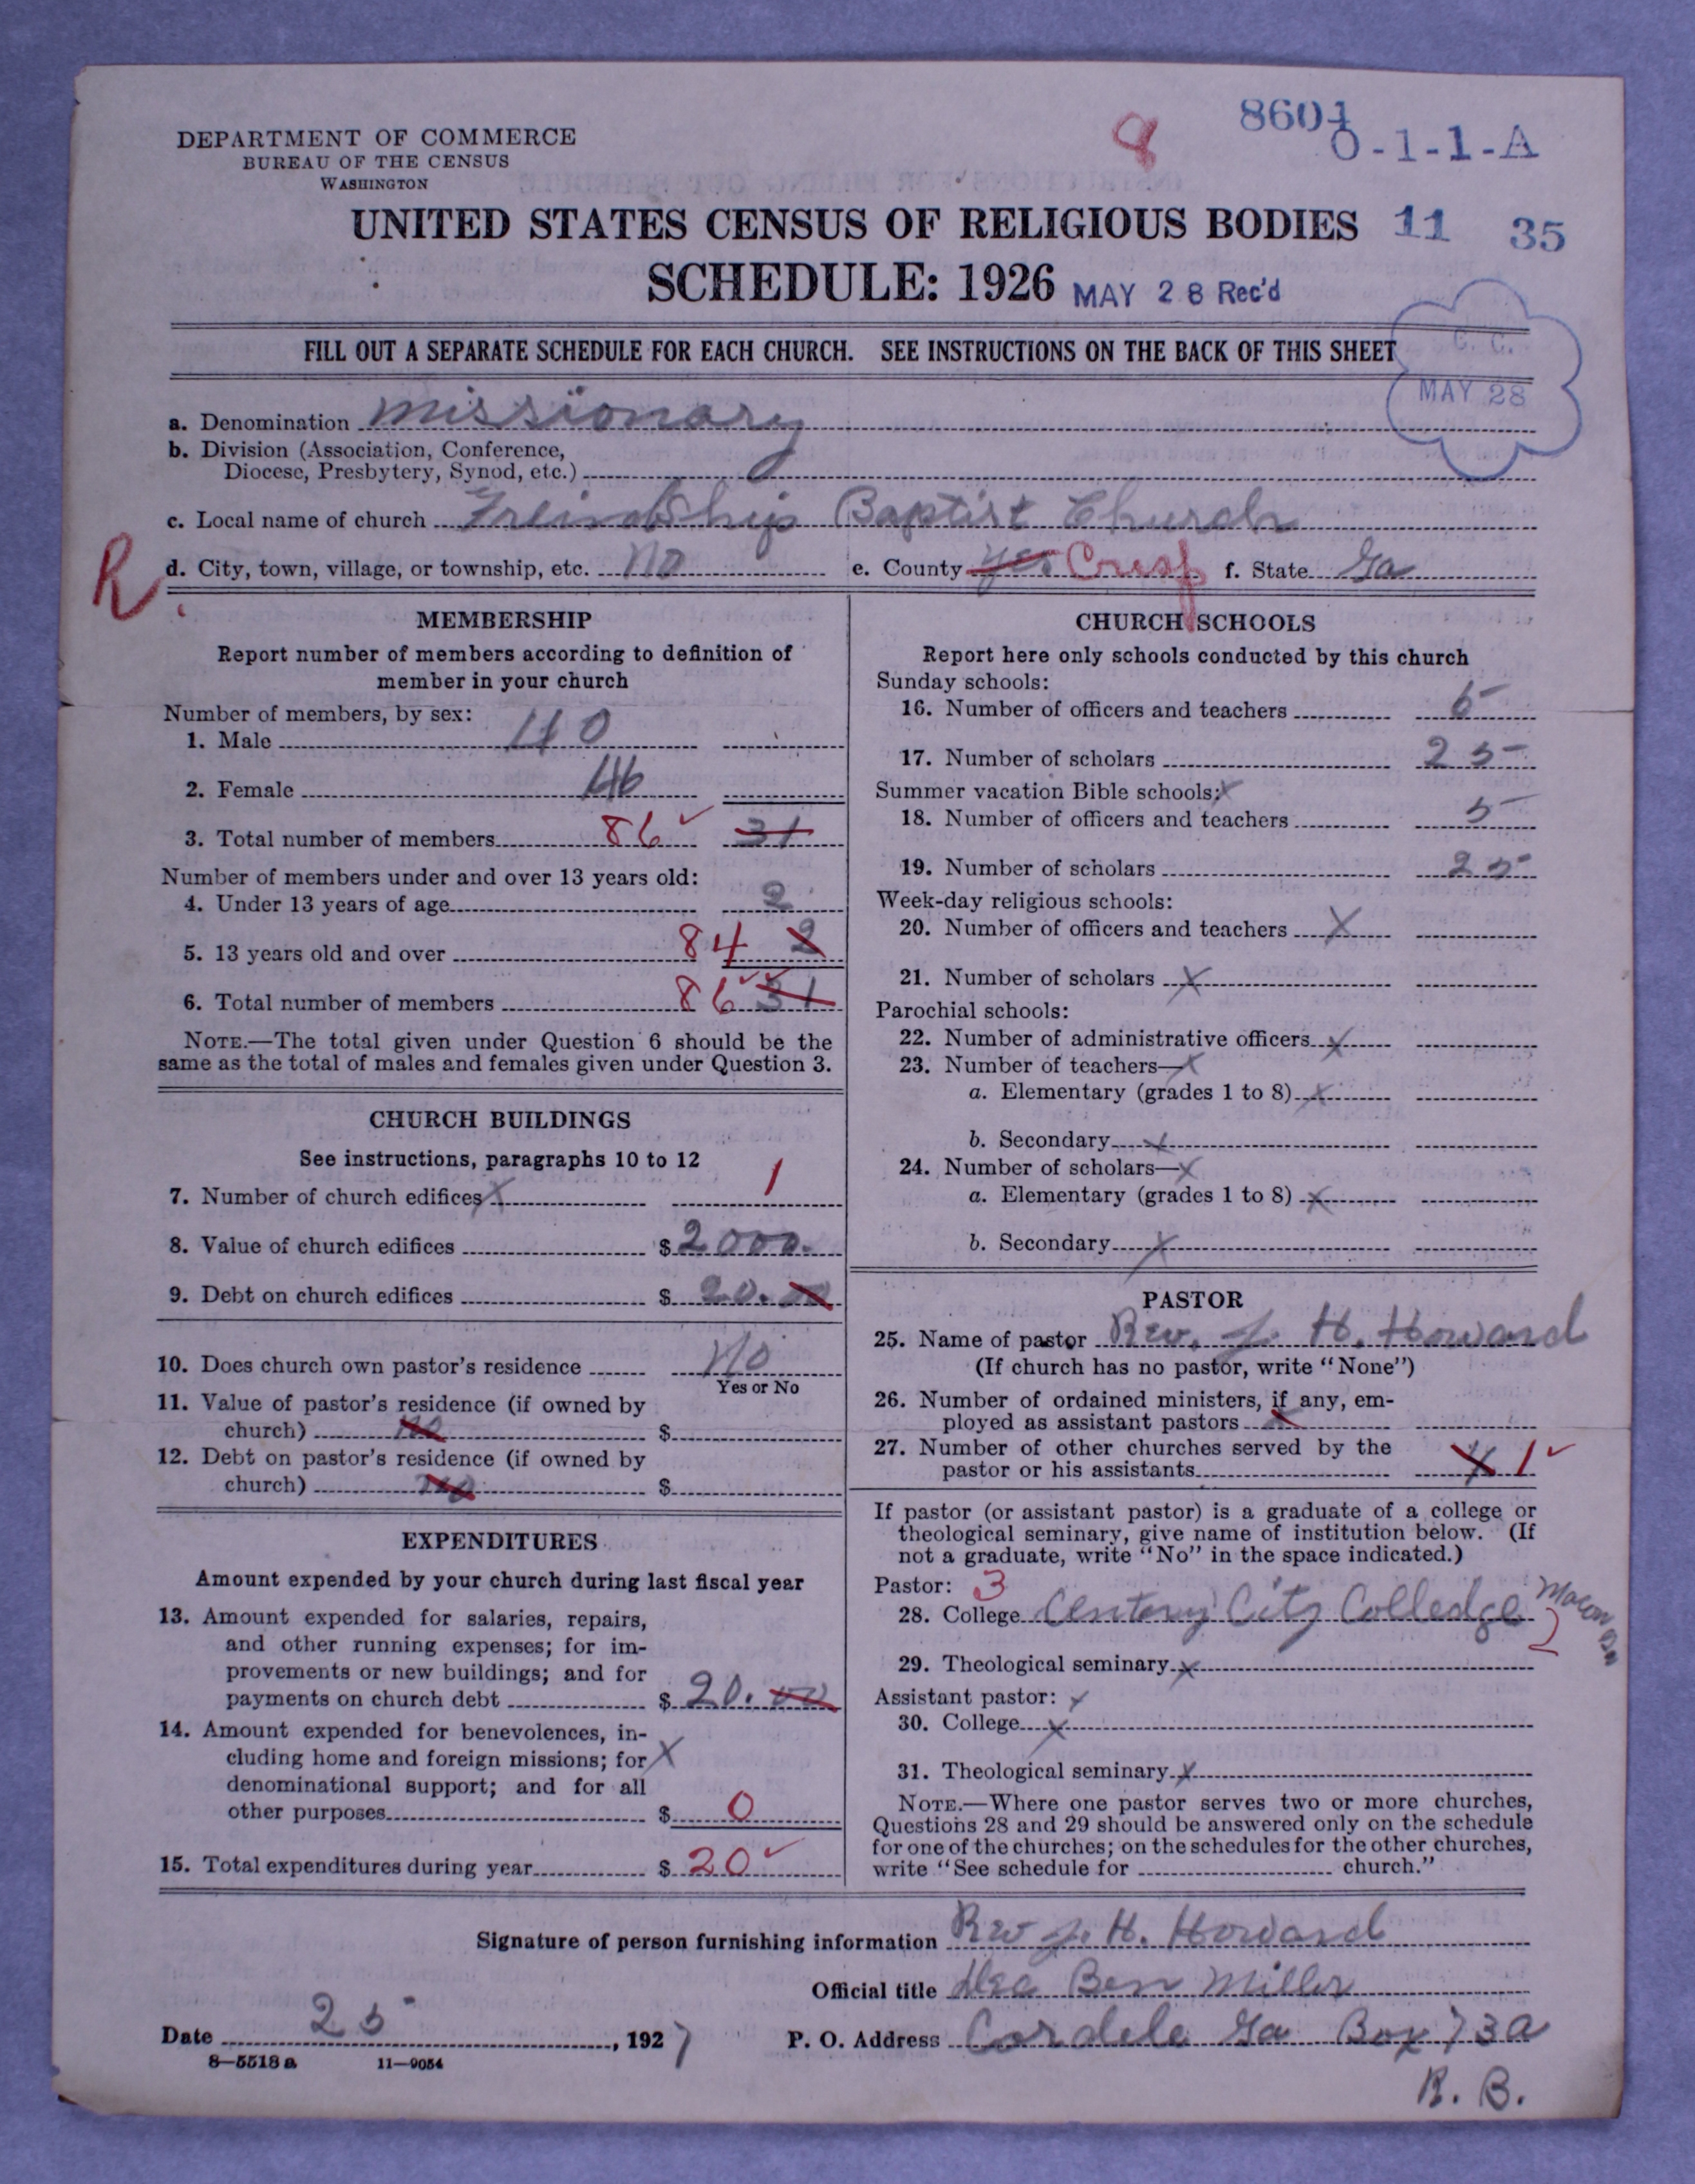 DEPARTMENT OF COMMERCE
BUREAU OF THE CENSUS
WASHINGTON
8
8601
0-1-1-A
UNITED STATES CENSUS OF RELIGIOUS BODIES 11 35
SCHEDULE: 1926 MAY 28 Rec'd
C. C.
MAY 28
FILL OUT A SEPARATE SCHEDULE FOR EACH CHURCH. SEE INSTRUCTIONS ON THE BACK OF THIS SHEET
a. Denomination missionary
b. Division (Association, Conference,
Diocese, Presbytery, Synod, etc.)
c. Local name of church Freindship Baptist Church
R.
d. City, town, village, or township, etc. No e. County yes Crisp f. State Ga
MEMBERSHIP
Report number of members according to definition of
member in your church
Number of members, by sex:
1. Male 40
2. Female 46
3. Total number of members 86 31
Number of members under and over 13 years old:
4. Under 13 years of age 2
5. 13 years old and over 84 2
6. Total number of members 86 31
NOTE.—The total given under Question 6 should be the
same as the total of males and females given under Question 3.
CHURCH BUILDINGS
See instructions, paragraphs 10 to 12
7. Number of church edifices X 1
8. Value of church edifices $ 2000.
9. Debt on church edifices $ 20.00
10. Does church own pastor's residence No
Yes or No
11. Value of pastor's residence (if owned by
church) no $
12. Debt on pastor's residence (if owned by
church) no $
EXPENDITURES
Amount expended by your church during last fiscal year
13. Amount expended for salaries, repairs,
and other running expenses; for im-
provements or new buildings; and for
payments on church debt $ 20.00
14. Amount expended for benevolences, in-
cluding home and foreign missions; for X
denominational support; and for all
other purposes $ 0
15. Total expenditures during year $ 20
CHURCH SCHOOLS
Report here only schools conducted by this church
Sunday schools:
16. Number of officers and teachers
17. Number of scholars 25
Summer vacation Bible schools: X
18. Number of officers and teachers 5
19. Number of scholars 25
Week-day religious schools:
20. Number of officers and teachers X
21. Number of scholars X
Parochial schools:
22. Number of administrative officers X
23. Number of teachers— X
a. Elementary (grades 1 to 8) X
b. Secondary X
24. Number of scholars— X
a. Elementary (grades 1 to 8) X
b. Secondary X
PASTOR
25. Name of pastor Rev. J. H. Howard
(If church has no pastor, write "None")
26. Number of ordained ministers, if any, em-
ployed as assistant pastors X
27. Number of other churches served by the
pastor or his assistants X 1
If pastor (or assistant pastor) is a graduate of a college or
theological seminary, give name of institution below. (If
not a graduate, write "No" in the space indicated.)
Pastor: 3
28. College Centery City Colledge Macon Ga
29. Theological seminary X
Assistant pastor: X
30. College X
31. Theological seminary X
NOTE.—Where one pastor serves two or more churches,
Questions 28 and 29 should be answered only on the schedule
for one of the churches; on the schedules for the other churches,
write "See schedule for church."
Signature of person furnishing information Rev J. H. Howard
Official title Dea Ben Miller
Date 25, 1927 P. O. Address Cordele Ga Box 73a
8—5518a 11—9054
R. B.